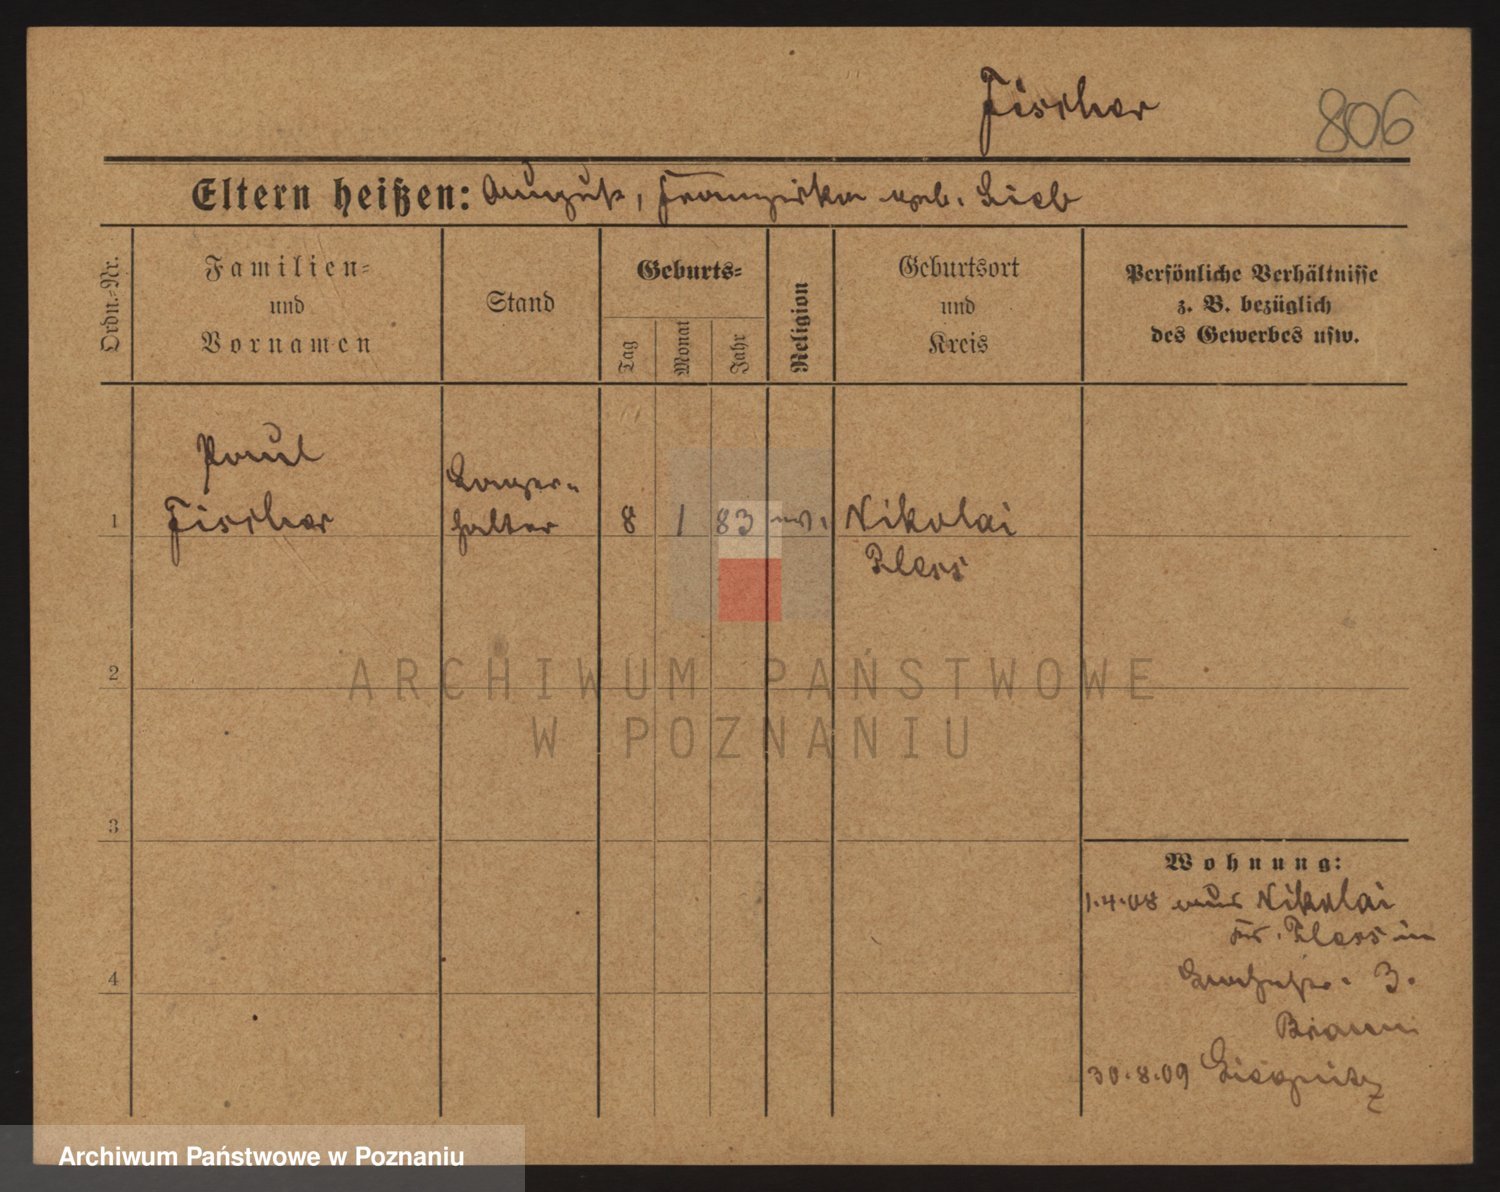 Fischer
806
Eltern heißen: August, Franziska geb. Lieb
Ordn.-Nr.
Familien-
und
Vornamen
Stand
Geburts-
Tag
Monat
Jahr
Religion
Geburtsort
und
Kreis
Persönliche Verhältnisse
z. B. bezüglich
des Gewerbes usw.
Paul
Lager-
1 Fischer halter 8 1 83 ev. Nikolai
Pless
2
3
4
Wohnung:
1.4.08 aus Nikolai
Kr. Pless in
3.
30.8.09 Liegnitz
ARCHIWUM PAŃSTWOWE
W POZNANIU
Archiwum Państwowe w Poznaniu